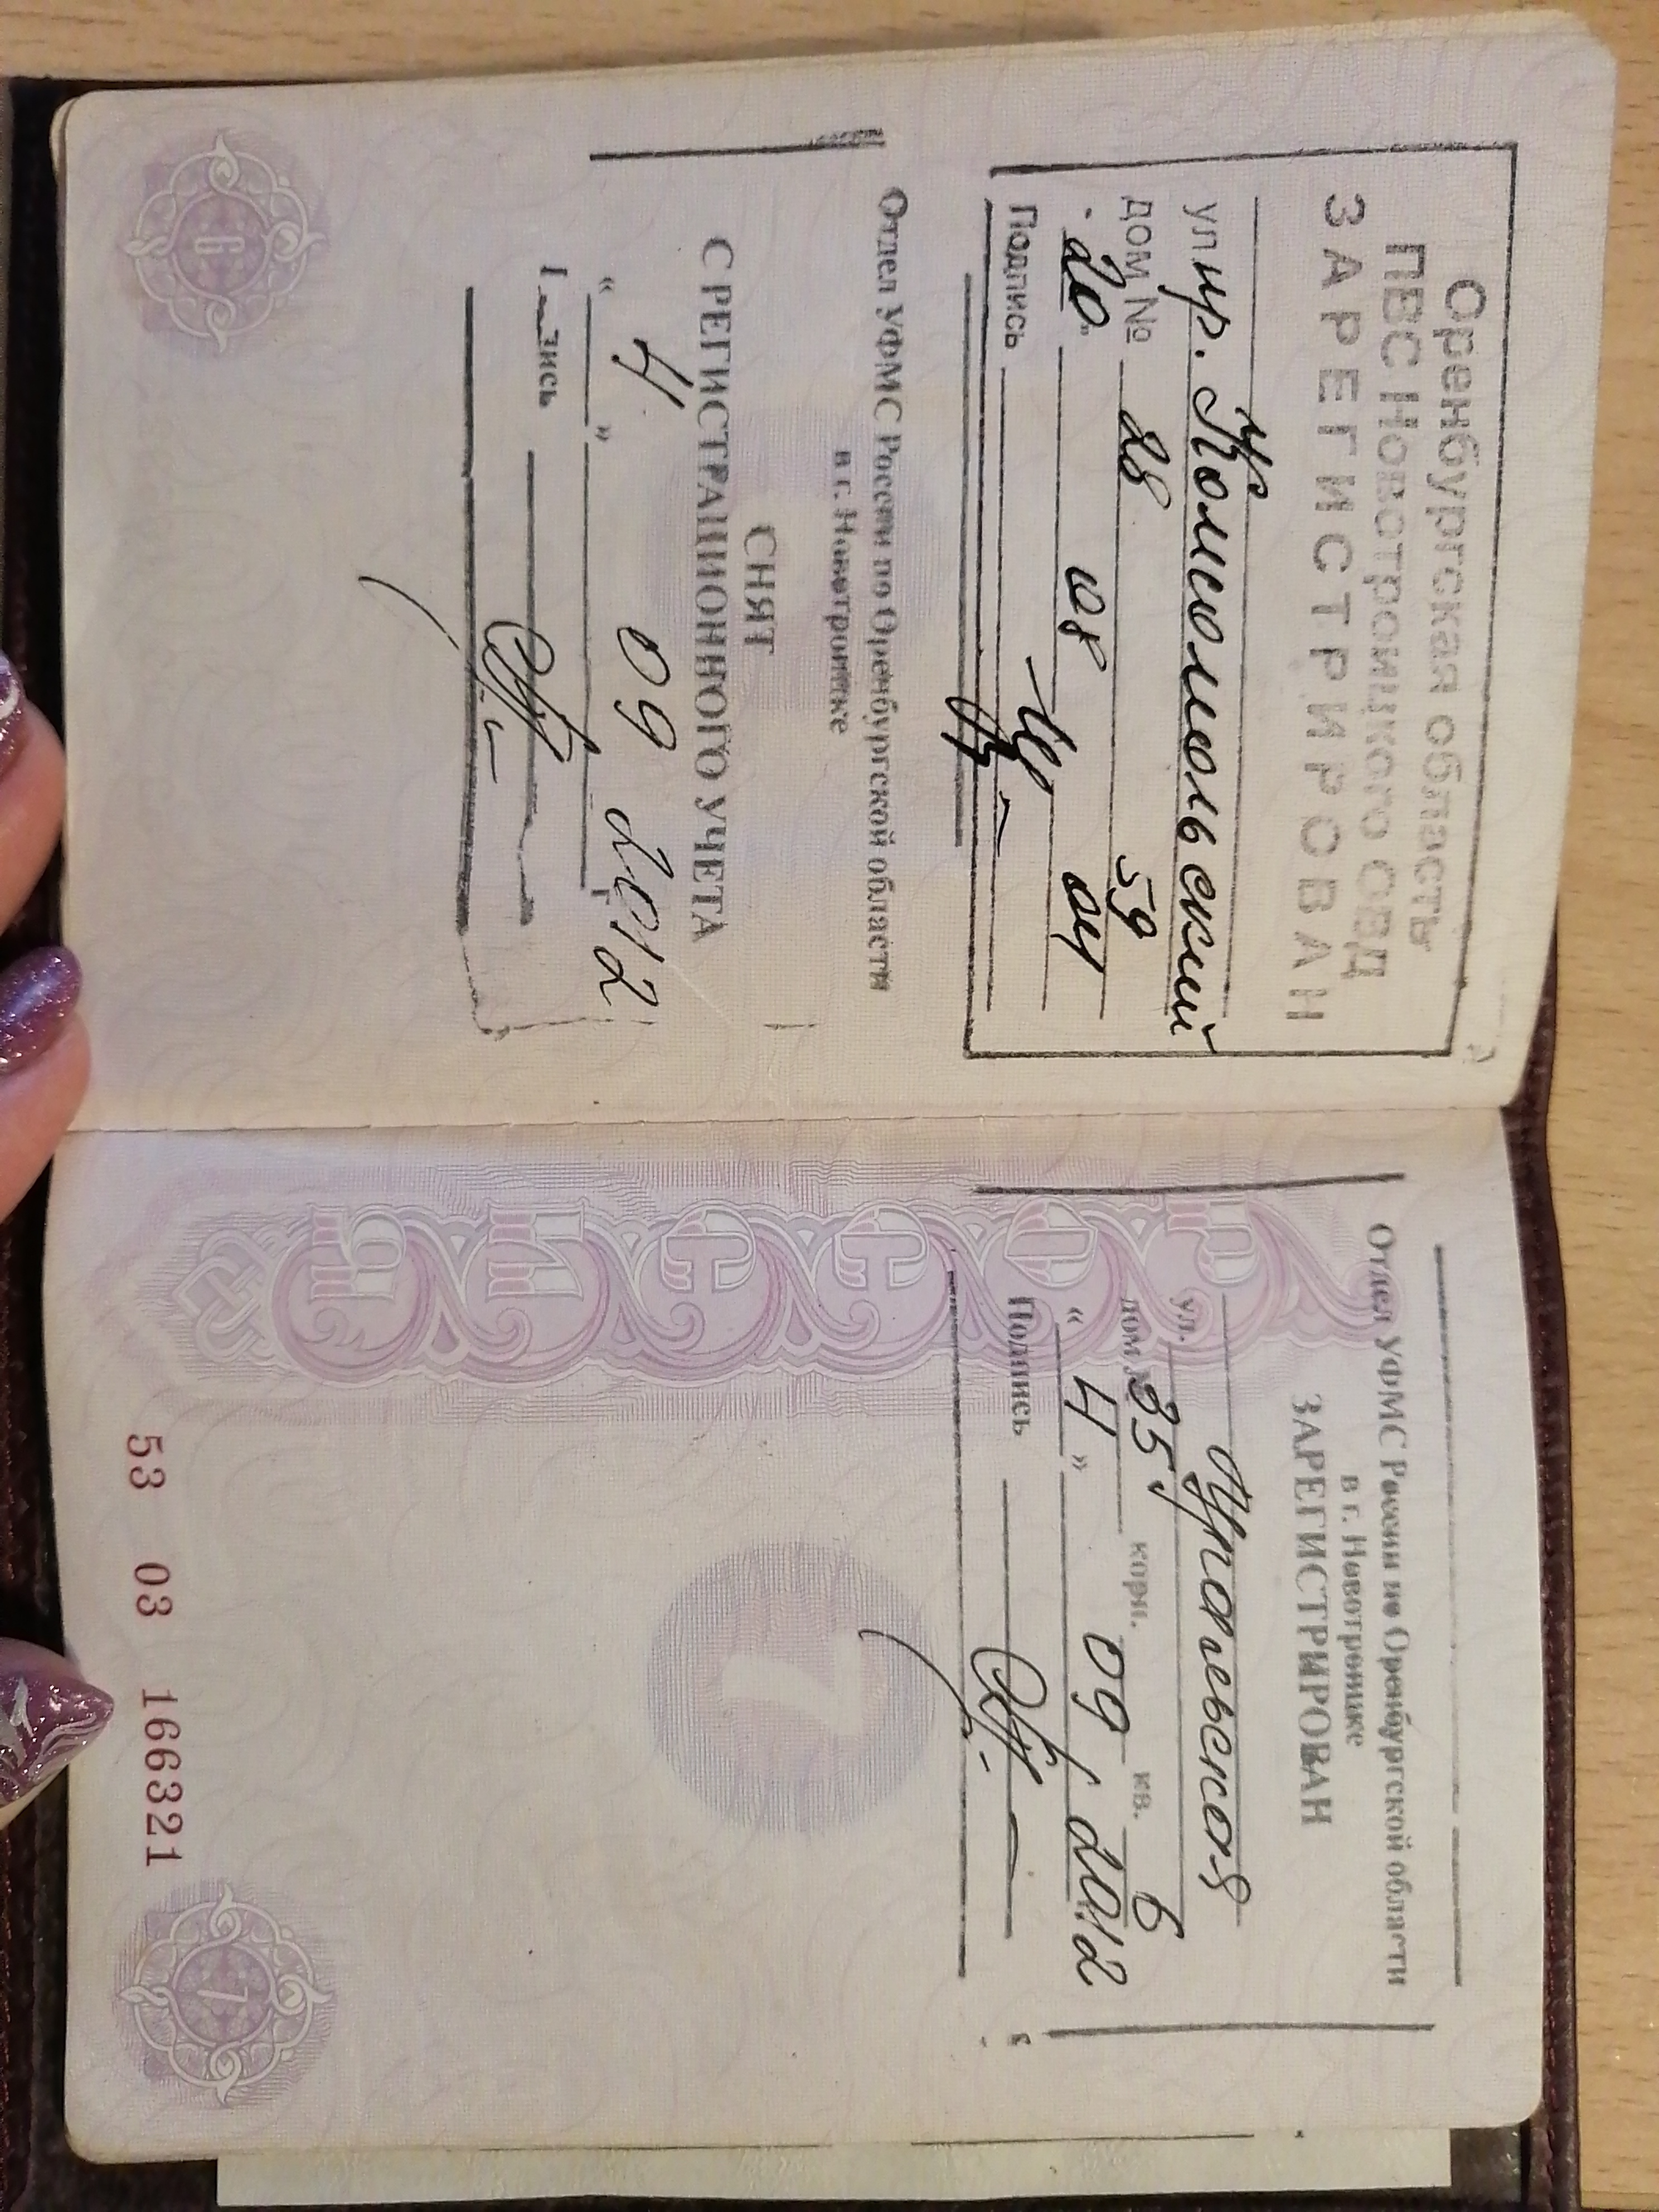 Оренбургская область
ПВС Новотроицкого ОВД
ЗАРЕГИСТРИРОВАН
ул пр. Комсомольский
дом № 28 59
"20" 08 04
Подпись
Отдел УФМС России по Оренбургской области
в г. Новотроицке
СНЯТ
С РЕГИСТРАЦИОННОГО УЧЕТА
" 4 " 09 2012 г.
6
Отдел УФМС России по Оренбургской области
в г. Новотроицке
ЗАРЕГИСТРИРОВАН
ул. Уральская
дом 35 корп. кв. 6
" 4 " 09 2012
Подпись
РОССИЯ
7
53 03 166321
7